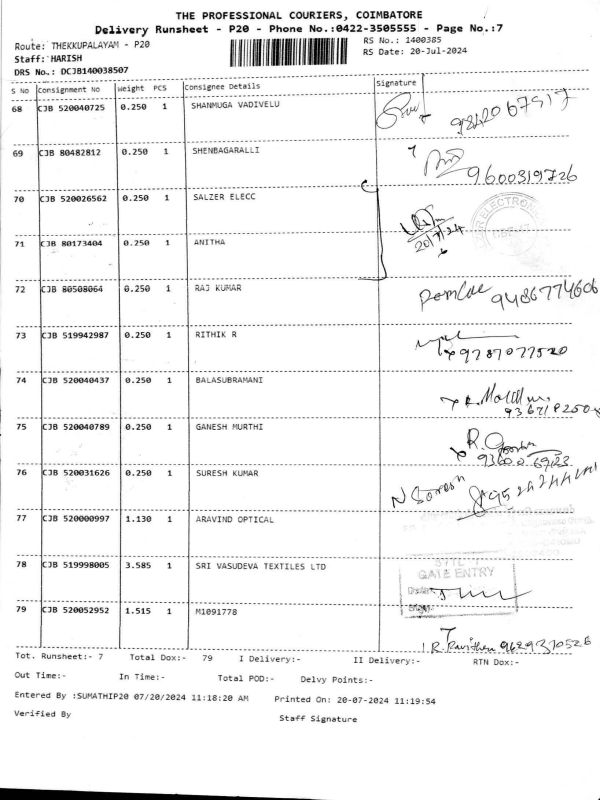 THE PROFESSIONAL COURIERS, COIMBATORE
Delivery Runsheet - P20 - Phone No.:0422-3505555 - Page No.:7
Route: THEKKUPALAYAM - P20
RS No.: 1400385
Staff: HARISH
RS Date: 20-Jul-2024
DRS No.: DCJB140038507
S No Consignment No Weight PCS Consignee Details Signature
68 CJB 520040725 0.250 1 SHANMUGA VADIVELU 9842067917
69 CJB 80482812 0.250 1 SHENBAGARALLI 9600319726
70 CJB 520026562 0.250 1 SALZER ELECC
20/7/24
71 CJB 80173404 0.250 1 ANITHA
72 CJB 80508064 0.250 1 RAJ KUMAR 9486774606
73 CJB 519942987 0.250 1 RITHIK R
9787077520
74 CJB 520040437 0.250 1 BALASUBRAMANI
75 CJB 520040789 0.250 1 GANESH MURTHI
76 CJB 520031626 0.250 1 SURESH KUMAR
77 CJB 520000997 1.130 1 ARAVIND OPTICAL
78 CJB 519998005 3.585 1 SRI VASUDEVA TEXTILES LTD
GATE ENTRY
79 CJB 520052952 1.515 1 M1091778
9629310526
Tot. Runsheet:- 7 Total Dox:- 79 I Delivery:- II Delivery:- RTN Dox:-
Out Time:- In Time:- Total POD:- Delvy Points:-
Entered By :SUMATHIP20 07/20/2024 11:18:20 AM Printed On: 20-07-2024 11:19:54
Verified By Staff Signature